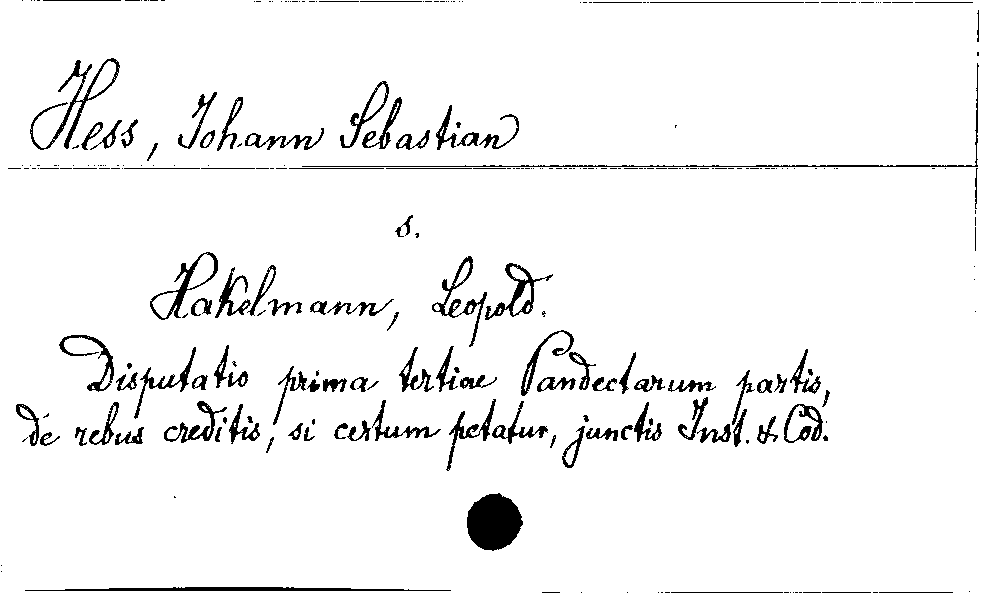 Hess, Johann Sebastian
s.
Hakelmann, Leopold.
Disputatio prima tertiae Pandectarum partis,
de rebus creditis, si certum petatur, junctis Inst. & Cod.